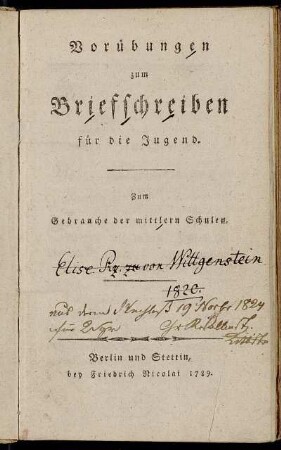 Vorübungen
zum
Briefschreiben
für die Jugend.
Zum
Gebrauche der mittlern Schulen.
Elise Pz. zu von Wittgenstein
1820.
aus dem Nachlaß 19 Novbr 1824
Berlin und Stettin,
bey Friedrich Nicolai 1789.